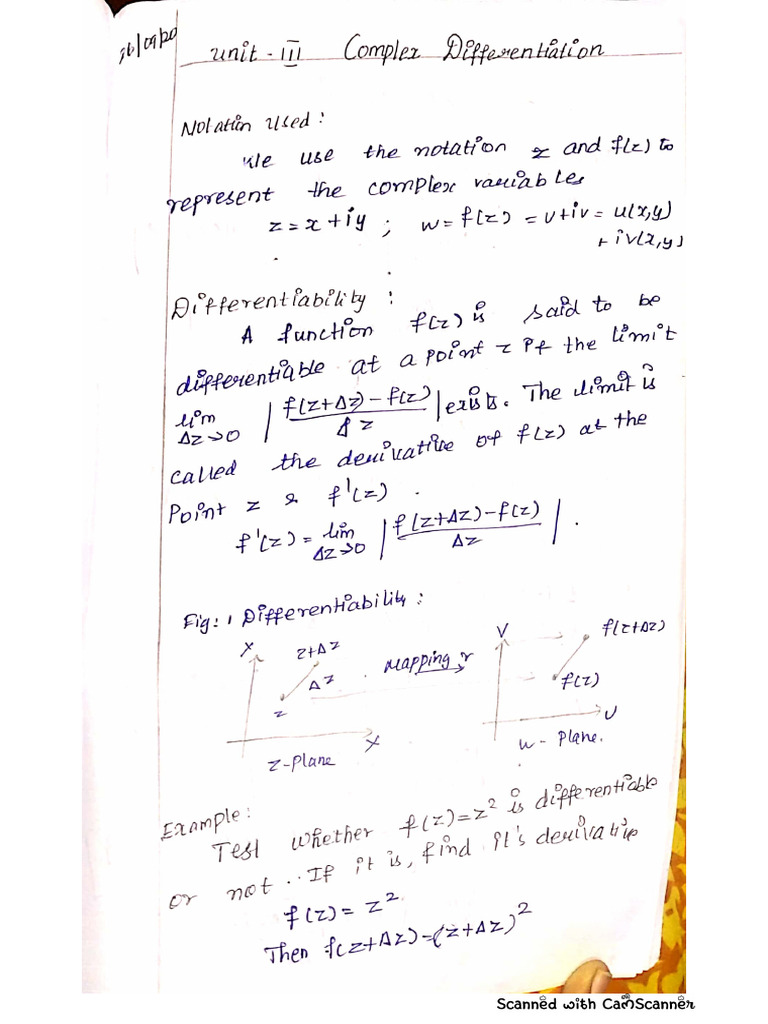 Unit - III Complex Differentiation
Notation Used:
We use the notation z and f(z) to
represent the complex variables
z = x + iy ; w = f(z) = u+iv = u(x,y)
+ iv(x,y)
Differentiability :
A function f(z) is said to be
differentiable at a point z if the limit
lim Δz→0 | f(z+Δz) - f(z) / Δz | exists. The limit is
called the derivative of f(z) at the
Point z & f'(z) .
f'(z) = lim Δz→0 | f(z+Δz) - f(z) / Δz | .
Fig: 1 Differentiability :
Y z+Δz Δz z X z-plane
Mapping
V f(z+Δz) f(z) U w - plane.
Example:
Test whether f(z) = z² is differentiable
or not. If it is, find it's derivative
f(z) = z²
Then f(z+Δz) = (z+Δz)²
Scanned with CamScanner